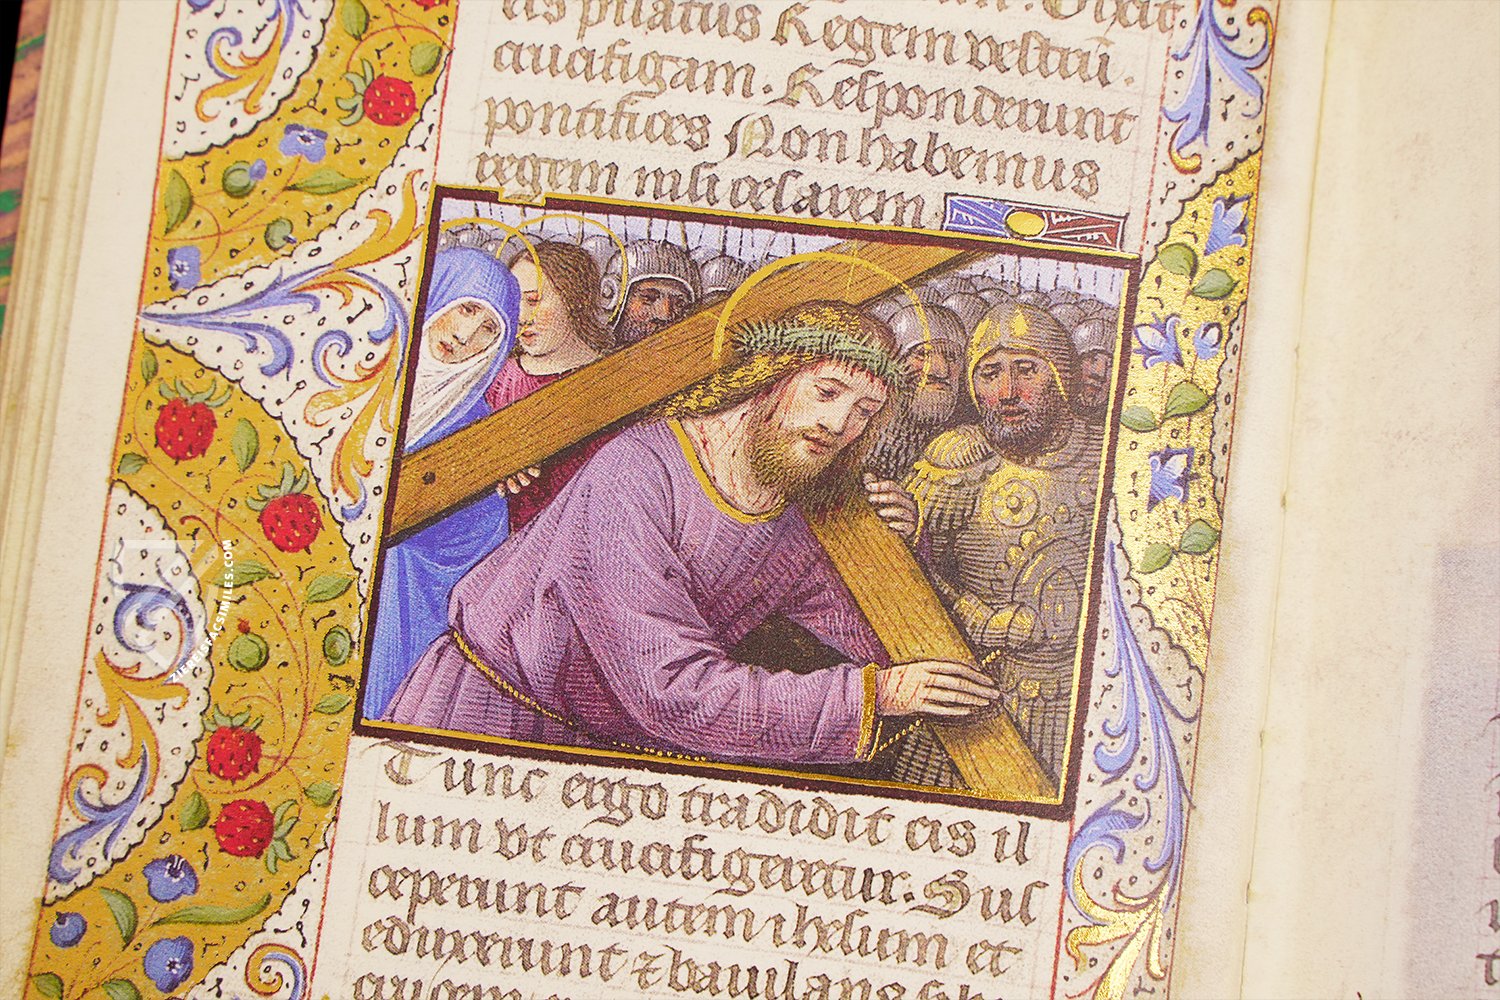 Dixit
eis pilatus Regem vestrū.
crucifigam. Responderunt
pontifices Non habemus
regem nisi cesarem
Tunc ergo tradidit eis il
lum vt crucifigeretur. Sus
ceperunt autem ihesum et
eduxerunt ⁊ baiulans sibi
crucem
ZIEREISFACSIMILES.COM